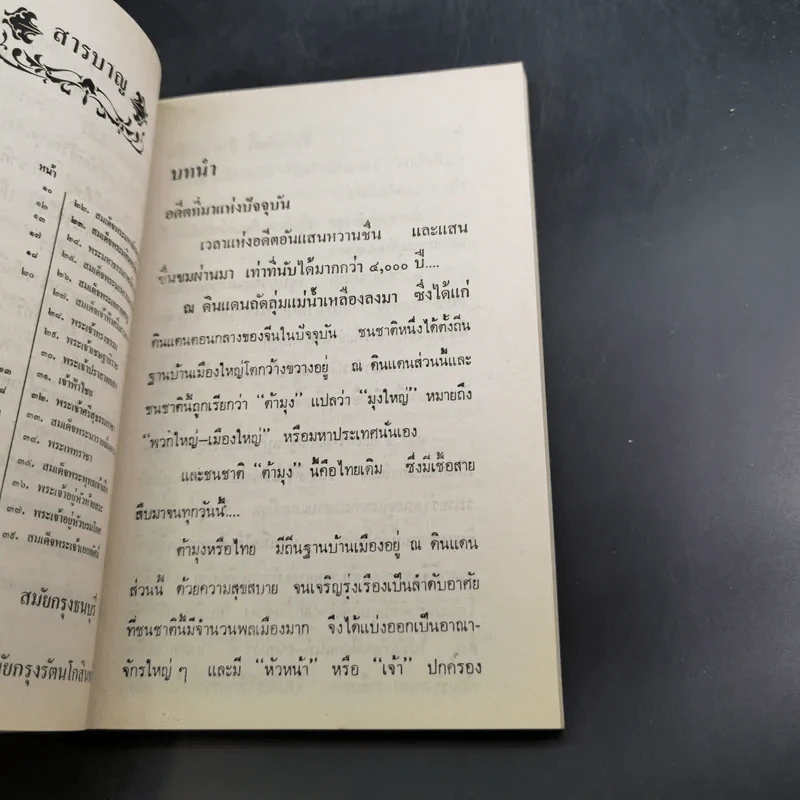 สารบาญ
หน้า
๑๐
๑๒
๑๓
๑๗
๑๘
๒๐
๒๒. สมเด็จพระ
๒๓. สมเด็จพระ
๒๔. พระมหา
๒๕. สมเด็จพระ
๒๖. สมเด็จ
๒๗. สมเด็จเจ้า
๒๘. พระเจ้าทรงธรรม
๒๙. พระเจ้าเชษฐาธิราช
๓๐. พระเจ้าปราสาททอง
๓๑. เจ้าฟ้าไชย
๓๒. พระเจ้าศรีสุธรรมราชา
๓๓. สมเด็จพระนารายณ์
๓๔. พระเพทราชา
๓๕. สมเด็จพระพุทธเจ้าเสือ
๓๖. พระเจ้าอยู่หัวท้ายสระ
๓๗. พระเจ้าอยู่หัวบรมโกศ
๓๙. สมเด็จพระเจ้าเอกทัศน์
สมัยกรุงธนบุรี
มัยกรุงรัตนโกสินทร์
บทนำ
อดีตที่มาแห่งปัจจุบัน
เวลาแห่งอดีตอันแสนหวานชื่น และแสน
ขื่นขมผ่านมา เท่าที่นับได้มากกว่า ๔,๐๐๐ ปี....
ณ ดินแดนถัดลุ่มแม่น้ำเหลืองลงมา ซึ่งได้แก่
ดินแดนตอนกลางของจีนในปัจจุบัน ชนชาติหนึ่งได้ตั้งถิ่น
ฐานบ้านเมืองใหญ่โตกว้างขวางอยู่ ณ ดินแดนส่วนนี้และ
ชนชาตินี้ถูกเรียกว่า “ต้ามุง” แปลว่า “มุงใหญ่” หมายถึง
“พวกใหญ่–เมืองใหญ่” หรือมหาประเทศนั่นเอง
และชนชาติ “ต้ามุง” นี้คือไทยเดิม ซึ่งมีเชื้อสาย
สืบมาจนทุกวันนี้....
ต้ามุงหรือไทย มีถิ่นฐานบ้านเมืองอยู่ ณ ดินแดน
ส่วนนี้ ด้วยความสุขสบาย จนเจริญรุ่งเรืองเป็นลำดับอาศัย
ที่ชนชาตินี้มีจำนวนพลเมืองมาก จึงได้แบ่งออกเป็นอาณา-
จักรใหญ่ ๆ และมี “หัวหน้า” หรือ “เจ้า” ปกครอง